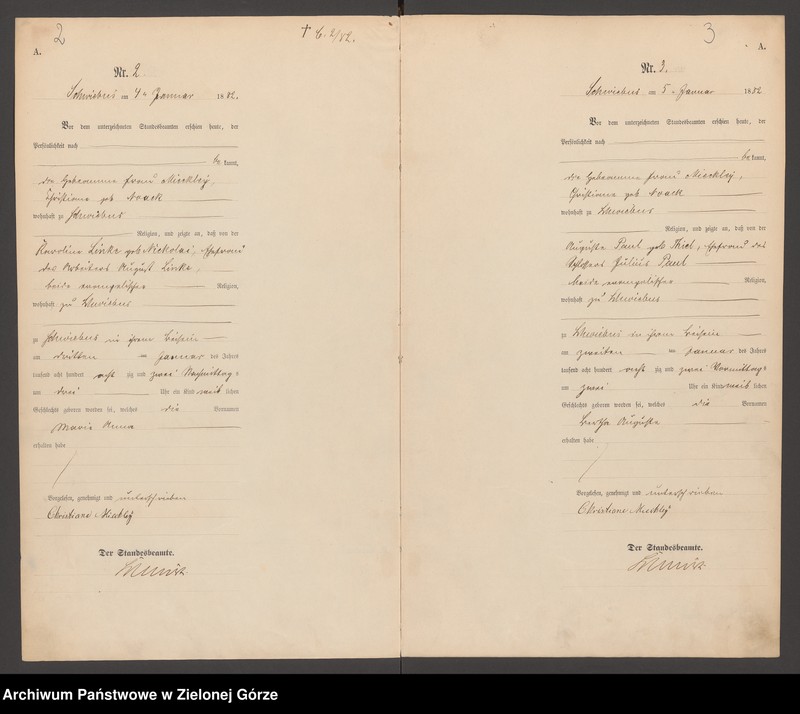 2
† C. 2/82.
A.
Nr. 2.
Schwiebus am 4ten Januar 1882.
Vor dem unterzeichneten Standesbeamten erschien heute, der
Persönlichkeit nach
be kannt,
die Hebeamme Frau Mieckley,
Christiane geb Noack
wohnhaft zu Schwiebus
Religion, und zeigte an, daß von der
Karoline Linke geb Nickolai, Ehefrau
des Arbeiters August Linke,
beide evangelischer Religion,
wohnhaft zu Schwiebus
zu Schwiebus in ihrem Beisein
am dritten ten Januar des Jahres
tausend acht hundert acht zig und zwei Nachmittags
um drei Uhr ein Kind weib lichen
Geschlechts geboren worden sei, welches die Vornamen
Marie Anna
erhalten habe
Vorgelesen, genehmigt und unterschrieben
Christiane Mieckley
Der Standesbeamte.
3
A.
Nr. 3.
Schwiebus am 5ten Januar 1882
Vor dem unterzeichneten Standesbeamten erschien heute, der
Persönlichkeit nach
be kannt,
die Hebeamme Frau Mieckley,
Christiane geb Noack
wohnhaft zu Schwiebus
Religion, und zeigte an, daß von der
Auguste Paul geb Thiel, Ehefrau des
Schlossers Julius Paul
beide evangelischer Religion,
wohnhaft zu Schwiebus
zu Schwiebus in ihrem Beisein
am zweiten ten Januar des Jahres
tausend acht hundert acht zig und zwei Vormittags
um zwei Uhr ein Kind weib lichen
Geschlechts geboren worden sei, welches die Vornamen
Bertha Auguste
erhalten habe
Vorgelesen, genehmigt und unterschrieben
Christiane Mieckley
Der Standesbeamte.
Archiwum Państwowe w Zielonej Górze